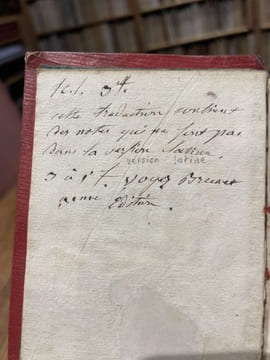 cette traduction contient
des notes qui ne sont pas
dans la version latine.
version latine
3 à 4 f. voyez Brunet
edition